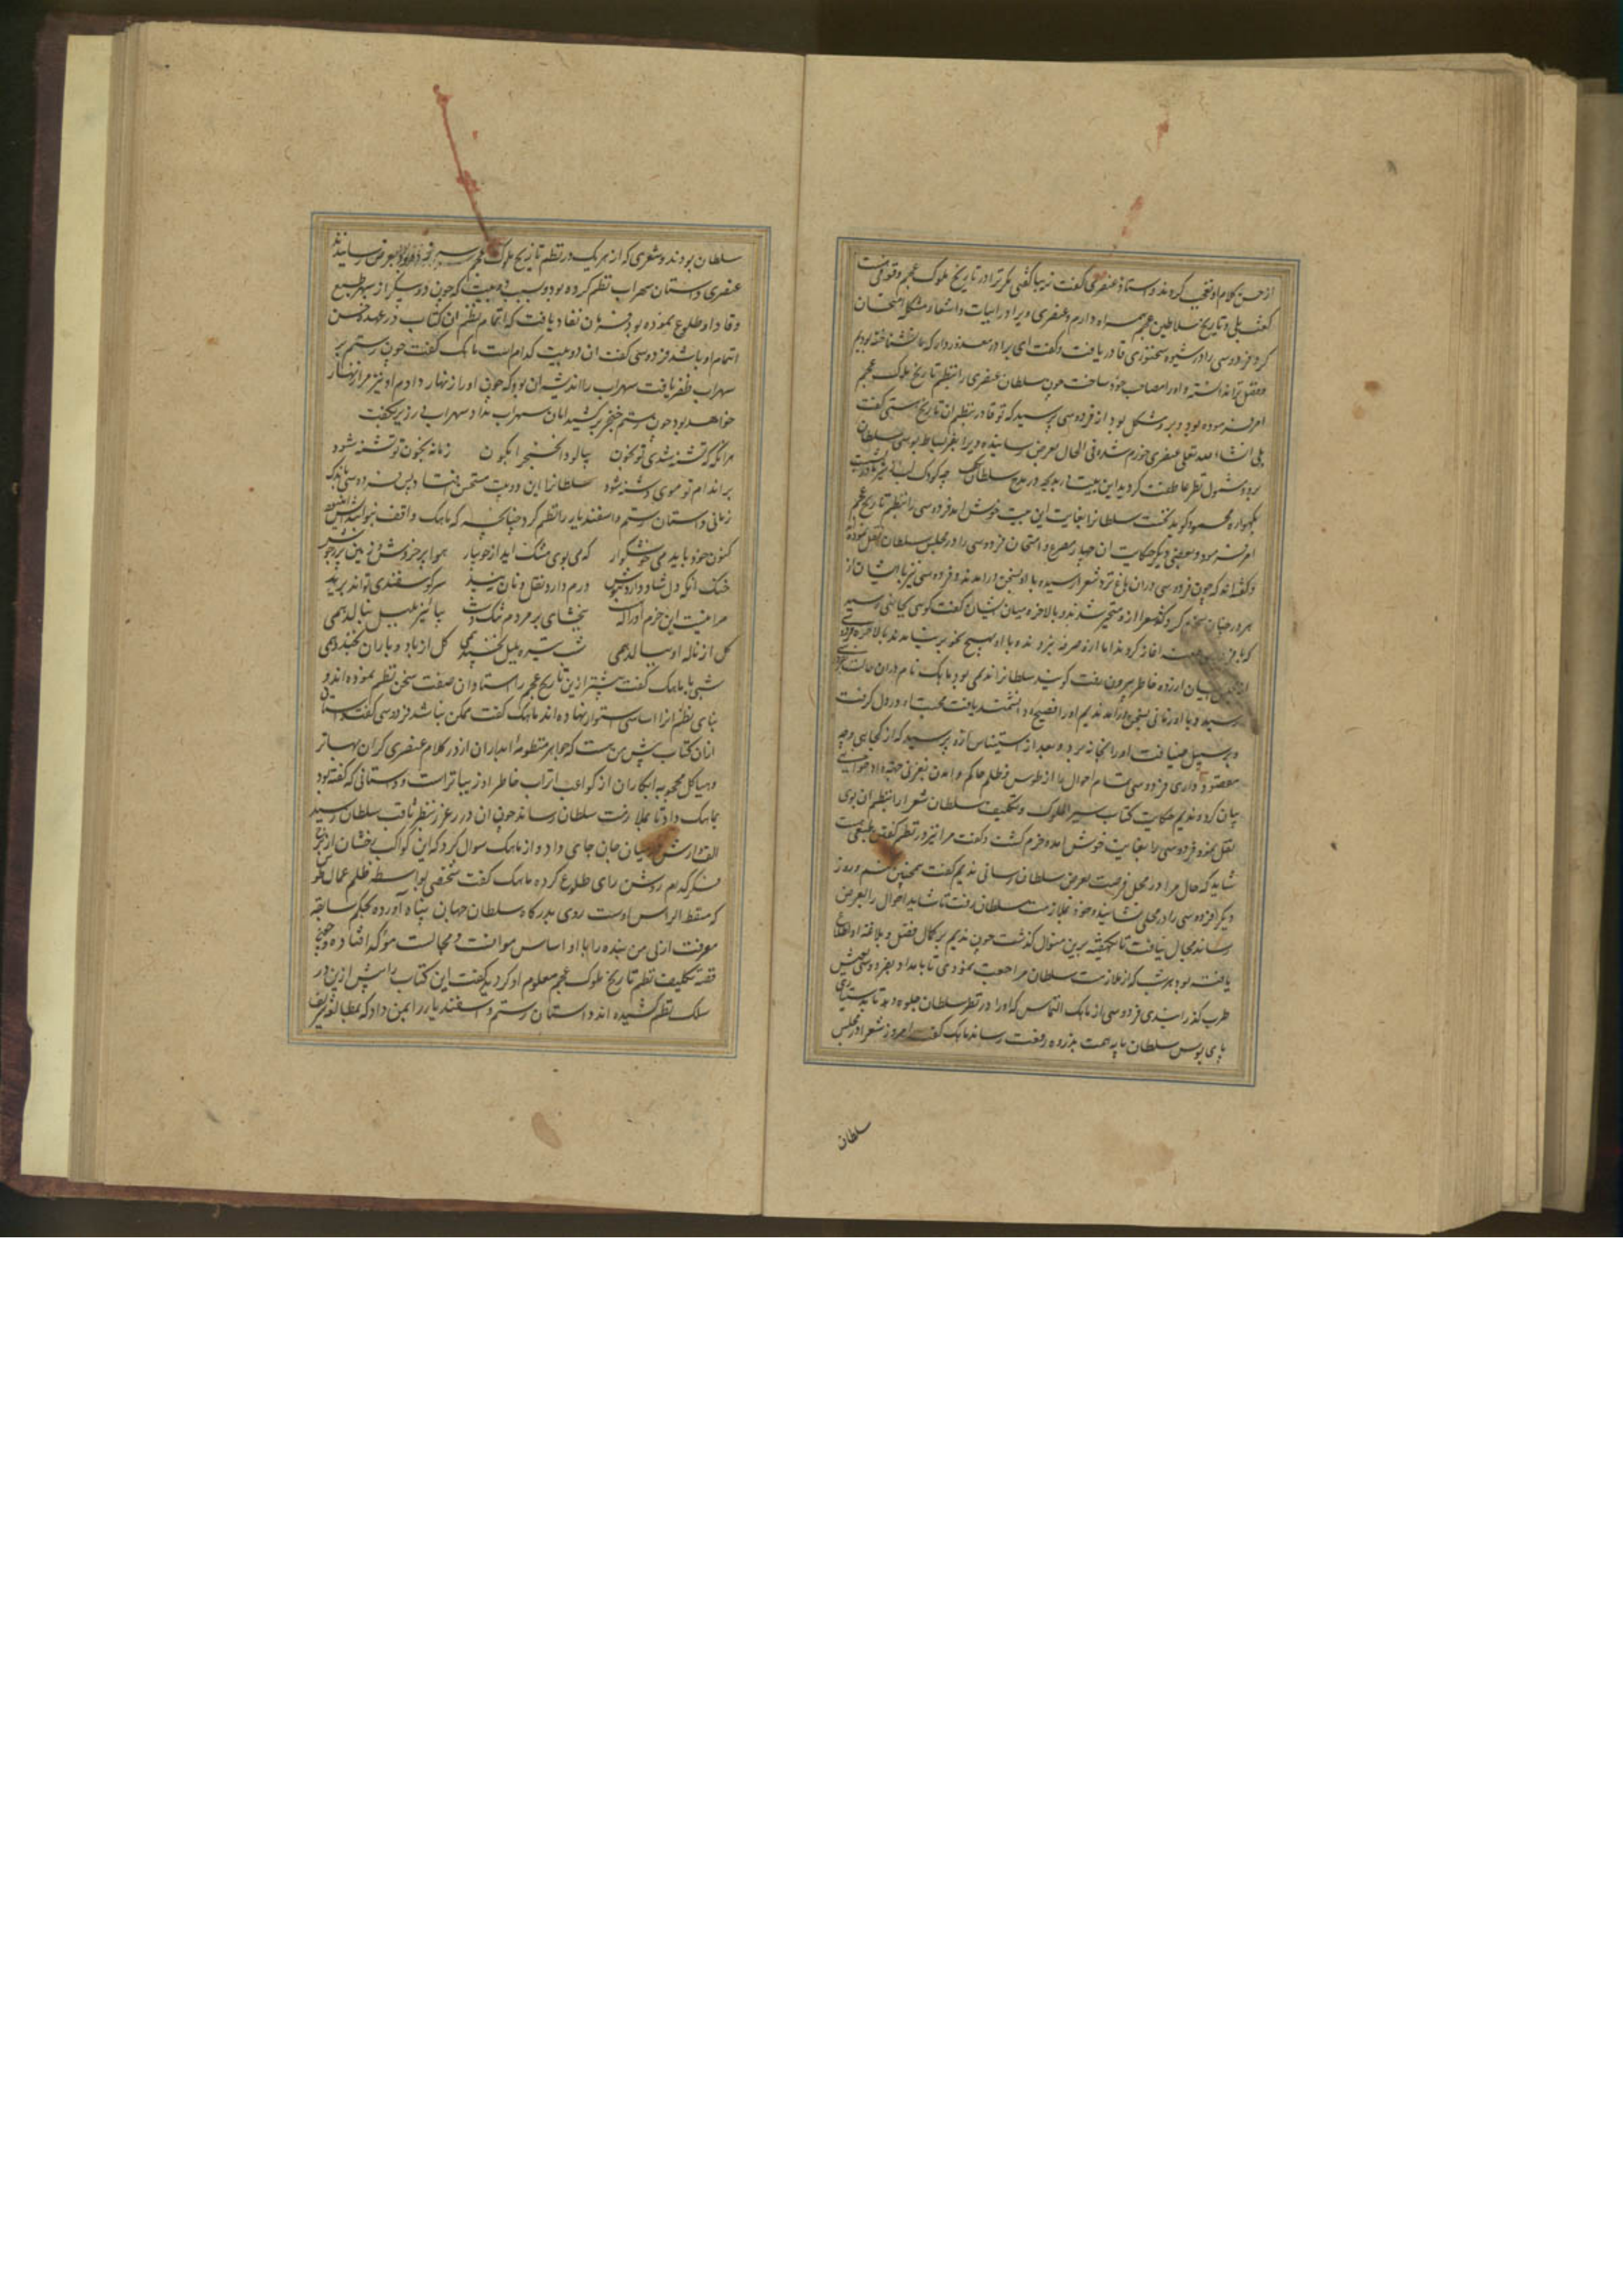 از حسن کلام او تعجب کردند و استاد عنصری گفت زیبا گفتی مگر ترا در تاریخ ملوک عجم وقوفی هست
گفت بلی و تاریخ سلاطین عجم همراه دارم و عنصری ویرا در ابیات و اشعار مشکله امتحان
کرد فردوسی را در شیوه سخنوری قادر یافت و گفت ای برادر معذور دار که ما ترا نشناخته بودیم
و فضل ترا ندانسته و او را مصاحب خود ساخت چون سلطان عنصری را بنظم تاریخ ملوک عجم
امر فرموده بود و برو مشکل بود از فردوسی پرسید که تو قادر بنظم ان تاریخ هستی گفت
بلی انشاء الله تعالی عنصری خورم شد و فی الحال بعرض رسانیده ویرا بعز بساط بوسی سلطان
برد و مشمول نظر عاطفت کردید این بیت در بدیهه در مدح سلطان گفت چو کودک لب از شیر مادر بشست
بگهواره محمود گوید نخست سلطانرا بغایت این بیت خوش امد فردوسی را بنظم تاریخ عجم
امر فرمود و بعضی دیگر حکایت ان چهار مصرع و امتحان فردوسی را در مجلس سلطان نقل نموده
و گفته اند که چون فردوسی دران باغ نزد شعرا رسیده با او بسخن درامدند و فردوسی نیز با ایشان از
هر در چنان سخن کرد که شعرا ازو متحیر شدند و بالاخره میان ایشان گفت کوسی بجائی رسید
که با فردوسی اغاز کردند اما ازو صرفه نبردند و با او بهیچ نحو برنیامدند بالاخره فردوسی
از میان ارزده خاطر بیرون رفت گویند سلطانرا ندیمی بود ماهک نام دران حالت
رسید و با او زمانی بسخن درامد ندیم او را فصیح و دانشمند یافت محبت او در دل گرفت
و بر سبیل ضیافت او را بخانه برد و بعد از استیناس تازه پرسید که از کجایی و چه
مقصود داری فردوسی تمام احوال را از طوس و ظلم حاکم و امدن بغزنی
بیان کرد ندیم حکایت کتاب سیر الملوک و تکلیف سلطان شعرا را بنظم ان بوی
نقل نمود فردوسی را بغایت خوش امده خرم کشت و گفت مرا نیز در نظم گفتن طبعی هست
شاید که حال مرا در محل فرصت بعرض سلطان رسانی ندیم گفت همچنین کنم و روز
دیگر فردوسی را در محلی نشانیده و خود بملازمت سلطان رفت تا شاید احوال را بعرض
رساند مجال نیافت تا یکهفته برین منوال گذشت چون ندیم بر کمال فضل و بلاغه او اطلاع
یافته بود هر شب که از ملازمت سلطان مراجعت نمودی تا بامداد بفردوسی بعیش
طرب گذرانیدی فردوسی از ماهک التماس که او را در نظر سلطان جلوه دهد تا بدستیاری
پای بوس سلطان پایه همت بذروه رفعت رساند ماهک گفت امروز شعرا در مجلس
سلطان
سلطان بودند و شعری که از هر یک در نظم تاریخ ملوک عجم بعرض رسانیدند
عنصری داستان سهراب نظم کرده بود و بسبب دو بیت که چون دو پیکر از سپهر طبع
وقاد او طلوع نموده بود فرمان نفاد یافت که اتمام نظم ان کتاب در عهده حسن
اهتمام او باشد فردوسی گفت ان دو بیت کدام است ماهک گفت چون رستم بر
سهراب ظفر یافت سهراب را اندیشه ان بود که چون او را زنهار دادم او نیز مرا زنهار
خواهد بود چون رستم خنجر برکشید امان سهراب نداد سهراب در زیر گفت
هر انگه که تشنه شدی تو بخون بیالود ان خنجر ابگون زمانه بخون تو تشنه شود
بر اندام تو موی دشنه شود سلطانرا این دو بیت مستحسن افتاد پس فردوسی باندک
زمانی داستان رستم و اسفندیار را نظم کرد چنانچه که ماهک واقف نبود
کنون خورد باید می خوشگوار که می بوی مشک اید از جویبار هوا پر خروش و زمین پر ز جوش
خنک انکه دل شاد دارد بنوش درم دارد و نقل و نان و نبید سر گوسفندی تواند برید
مرا نیست این خرم انرا که هست ببخشای بر مردم تنگدست بپالیز بلبل بنالد همی
گل از ناله او ببالد همی شب تیره بلبل نخسپد همی گل از باد و باران بجنبد همی
شبی با ماهک گفت پیشتر ازین تاریخ عجم را استادان صفت سخن نظم نموده اند و
بنای نظم انرا اساسی استوار نهاده اند ماهک گفت ممکن نباشد فردوسی گفت داستان
ازان کتاب پیش من هست که جواهر منظومه ابدار ان از در کلام عنصری گران بهاتر
و هیاکل محجوبه ابکار ان از کواعب اتراب خاطر او زیباتر است و داستانی که گفته بود
بماهک داد تا بملازمت سلطان رساند چون ان درر غرر بنظر ثاقب سلطان رسید
الف وارش در میان جان جای داد و از ماهک سوال کرد که این کواکب رخشان از برج
فکر کدام روشن رای طلوع کرده ماهک گفت شخصی بواسطه ظلم عمال طوس
که مسقط الراس اوست روی بدرگاه سلطان جهان پناه آورده بحکم سابقه
معرفت ازلی من بنده را با او اساس موانست و مجالست موکد افتاده و چون
قصه تکلیف نظم تاریخ ملوک عجم معلوم او کردید گفت این کتاب را پیش ازین در
سلک نظم کشیده اند و داستان رستم و اسفندیار را بمن داد که بمطالعه شریف